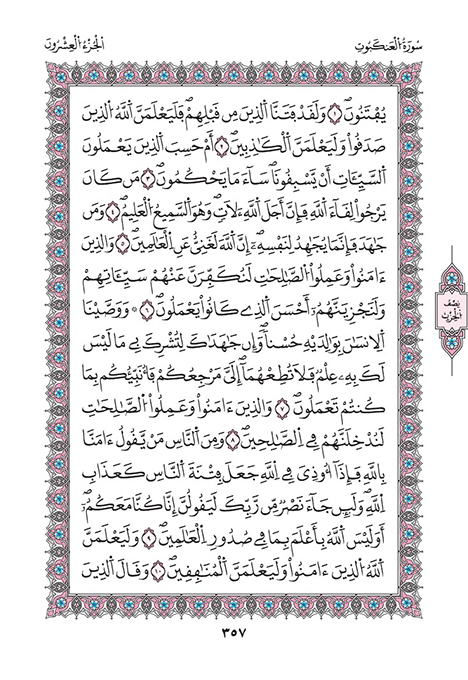 سُورَةُ الْعَنكَبُوتِ
الْجُزْءُ الْعِشْرُونَ
يُفْتَنُونَۖ ١ وَلَقَدْ فَتَنَّا اَلذِينَ مِن قَبْلِهِمْۖ فَلَيَعْلَمَنَّ اَللَّهُ اُلذِينَ
صَدَقُواْ وَلَيَعْلَمَنَّ اَلْكَٰذِبِينَۖ ٢ أَمْ حَسِبَ اَلذِينَ يَعْمَلُونَ
اَلسَّيِّـَٔاتِ أَنْ يَّسْبِقُونَاۖ سَآءَ مَا يَحْكُمُونَۖ ٣ مَن كَانَ
يَرْجُواْ لِقَآءَ اَللَّهِ فَإِنَّ أَجَلَ اَللَّهِ ءَلَاتٖۖ وَهُوَ اَلسَّمِيعُ اُلْعَلِيمُۖ ٤ وَمَن
جَٰهَدَ فَإِنَّمَا يُجَٰهِدُ لِنَفْسِهِۦۖ إِنَّ اَللَّهَ لَغَنِيٌّ عَنِ اِلْعَٰلَمِينَۖ ٥ وَالذِينَ
ءَامَنُواْ وَعَمِلُواْ اُلصَّٰلِحَٰتِ لَنُكَفِّرَنَّ عَنْهُمْ سَيِّـَٔاتِهِمْ
وَلَنَجْزِيَنَّهُمُۥٓ أَحْسَنَ اَلذِے كَانُواْ يَعْمَلُونَۖ ٦ ۞ وَوَصَّيْنَا
اَلِانسَٰنَ بِوَٰلِدَيْهِ حُسْناٗۖ وَإِن جَٰهَدَٰكَ لِتُشْرِكَ بِے مَا لَيْسَ
لَكَ بِهِۦ عِلْمٞ فَلَا تُطِعْهُمَآۖ إِلَيَّ مَرْجِعُكُمْ فَأُنَبِّئُكُم بِمَا
كُنتُمْ تَعْمَلُونَۖ ٧ وَالذِينَ ءَامَنُواْ وَعَمِلُواْ اُلصَّٰلِحَٰتِ
لَنُدْخِلَنَّهُمْ فِے اِلصَّٰلِحِينَۖ ٨ وَمِنَ اَلنَّاسِ مَنْ يَّقُولُ ءَامَنَّا
بِاللَّهِ فَإِذَآ أُوذِيَ فِے اِللَّهِ جَعَلَ فِتْنَةَ اَلنَّاسِ كَعَذَابِ
اِللَّهِۖ وَلَئِن جَآءَ نَصْرٞ مِّن رَّبِّكَ لَيَقُولُنَّ إِنَّا كُنَّا مَعَكُمُۥٓۖ
أَوَلَيْسَ اَللَّهُ بِأَعْلَمَ بِمَا فِے صُدُورِ اِلْعَٰلَمِينَۖ ٩ وَلَيَعْلَمَنَّ
اَللَّهُ اُلذِينَ ءَامَنُواْ وَلَيَعْلَمَنَّ اَلْمُنَٰفِقِينَۖ ١٠ وَقَالَ اَلذِينَ
نِصْفُ
الْحِزْبِ
٣٥٧